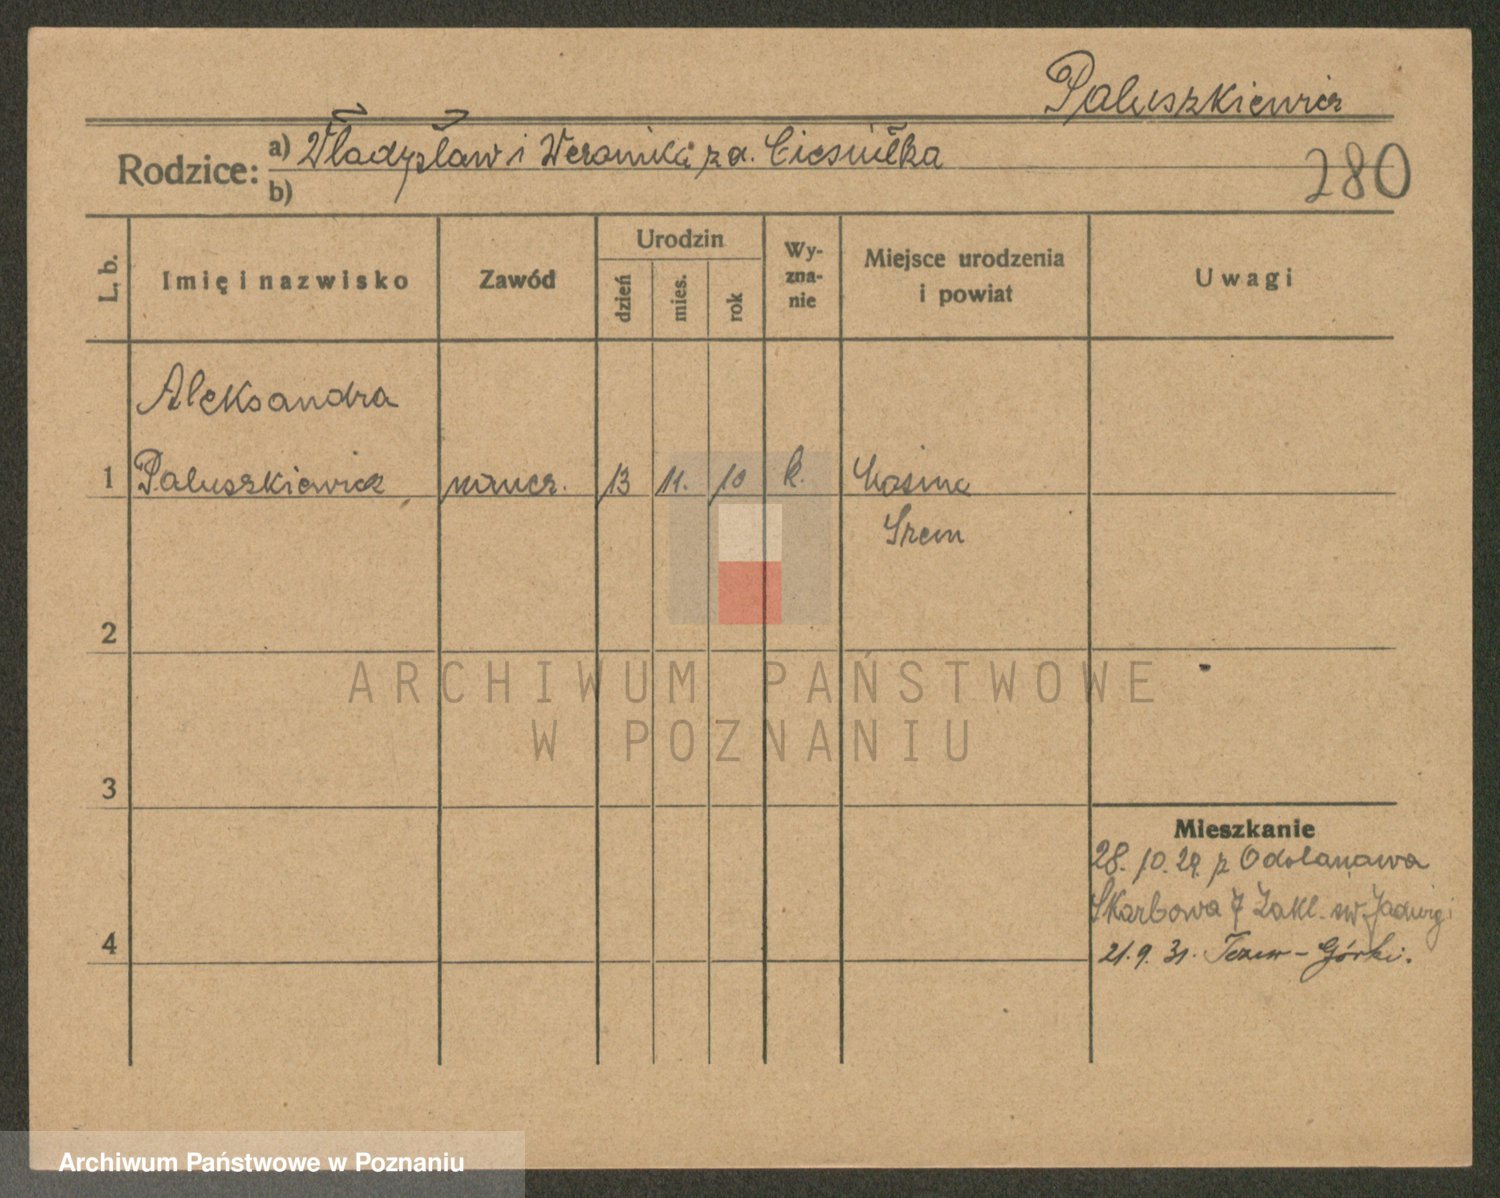 Paluszkiewicz
Rodzice: a) Władysław i Weronika z d.
b)
280
L. b.
Imię i nazwisko
Zawód
Urodzin
dzień
mies.
rok
Wy-
zna-
nie
Miejsce urodzenia
i powiat
Uwagi
Aleksandra
1 Paluszkiewicz naucz. 13 11. 10 k. Mosina
Śrem
2
ARCHIWUM PAŃSTWOWE
W POZNANIU
3
Mieszkanie
28. 10. 29. z Odolanowa
Skarbowa 7 Zakl. św. Jadwigi
4
21. 9. 31. Tczew - Górki.
Archiwum Państwowe w Poznaniu